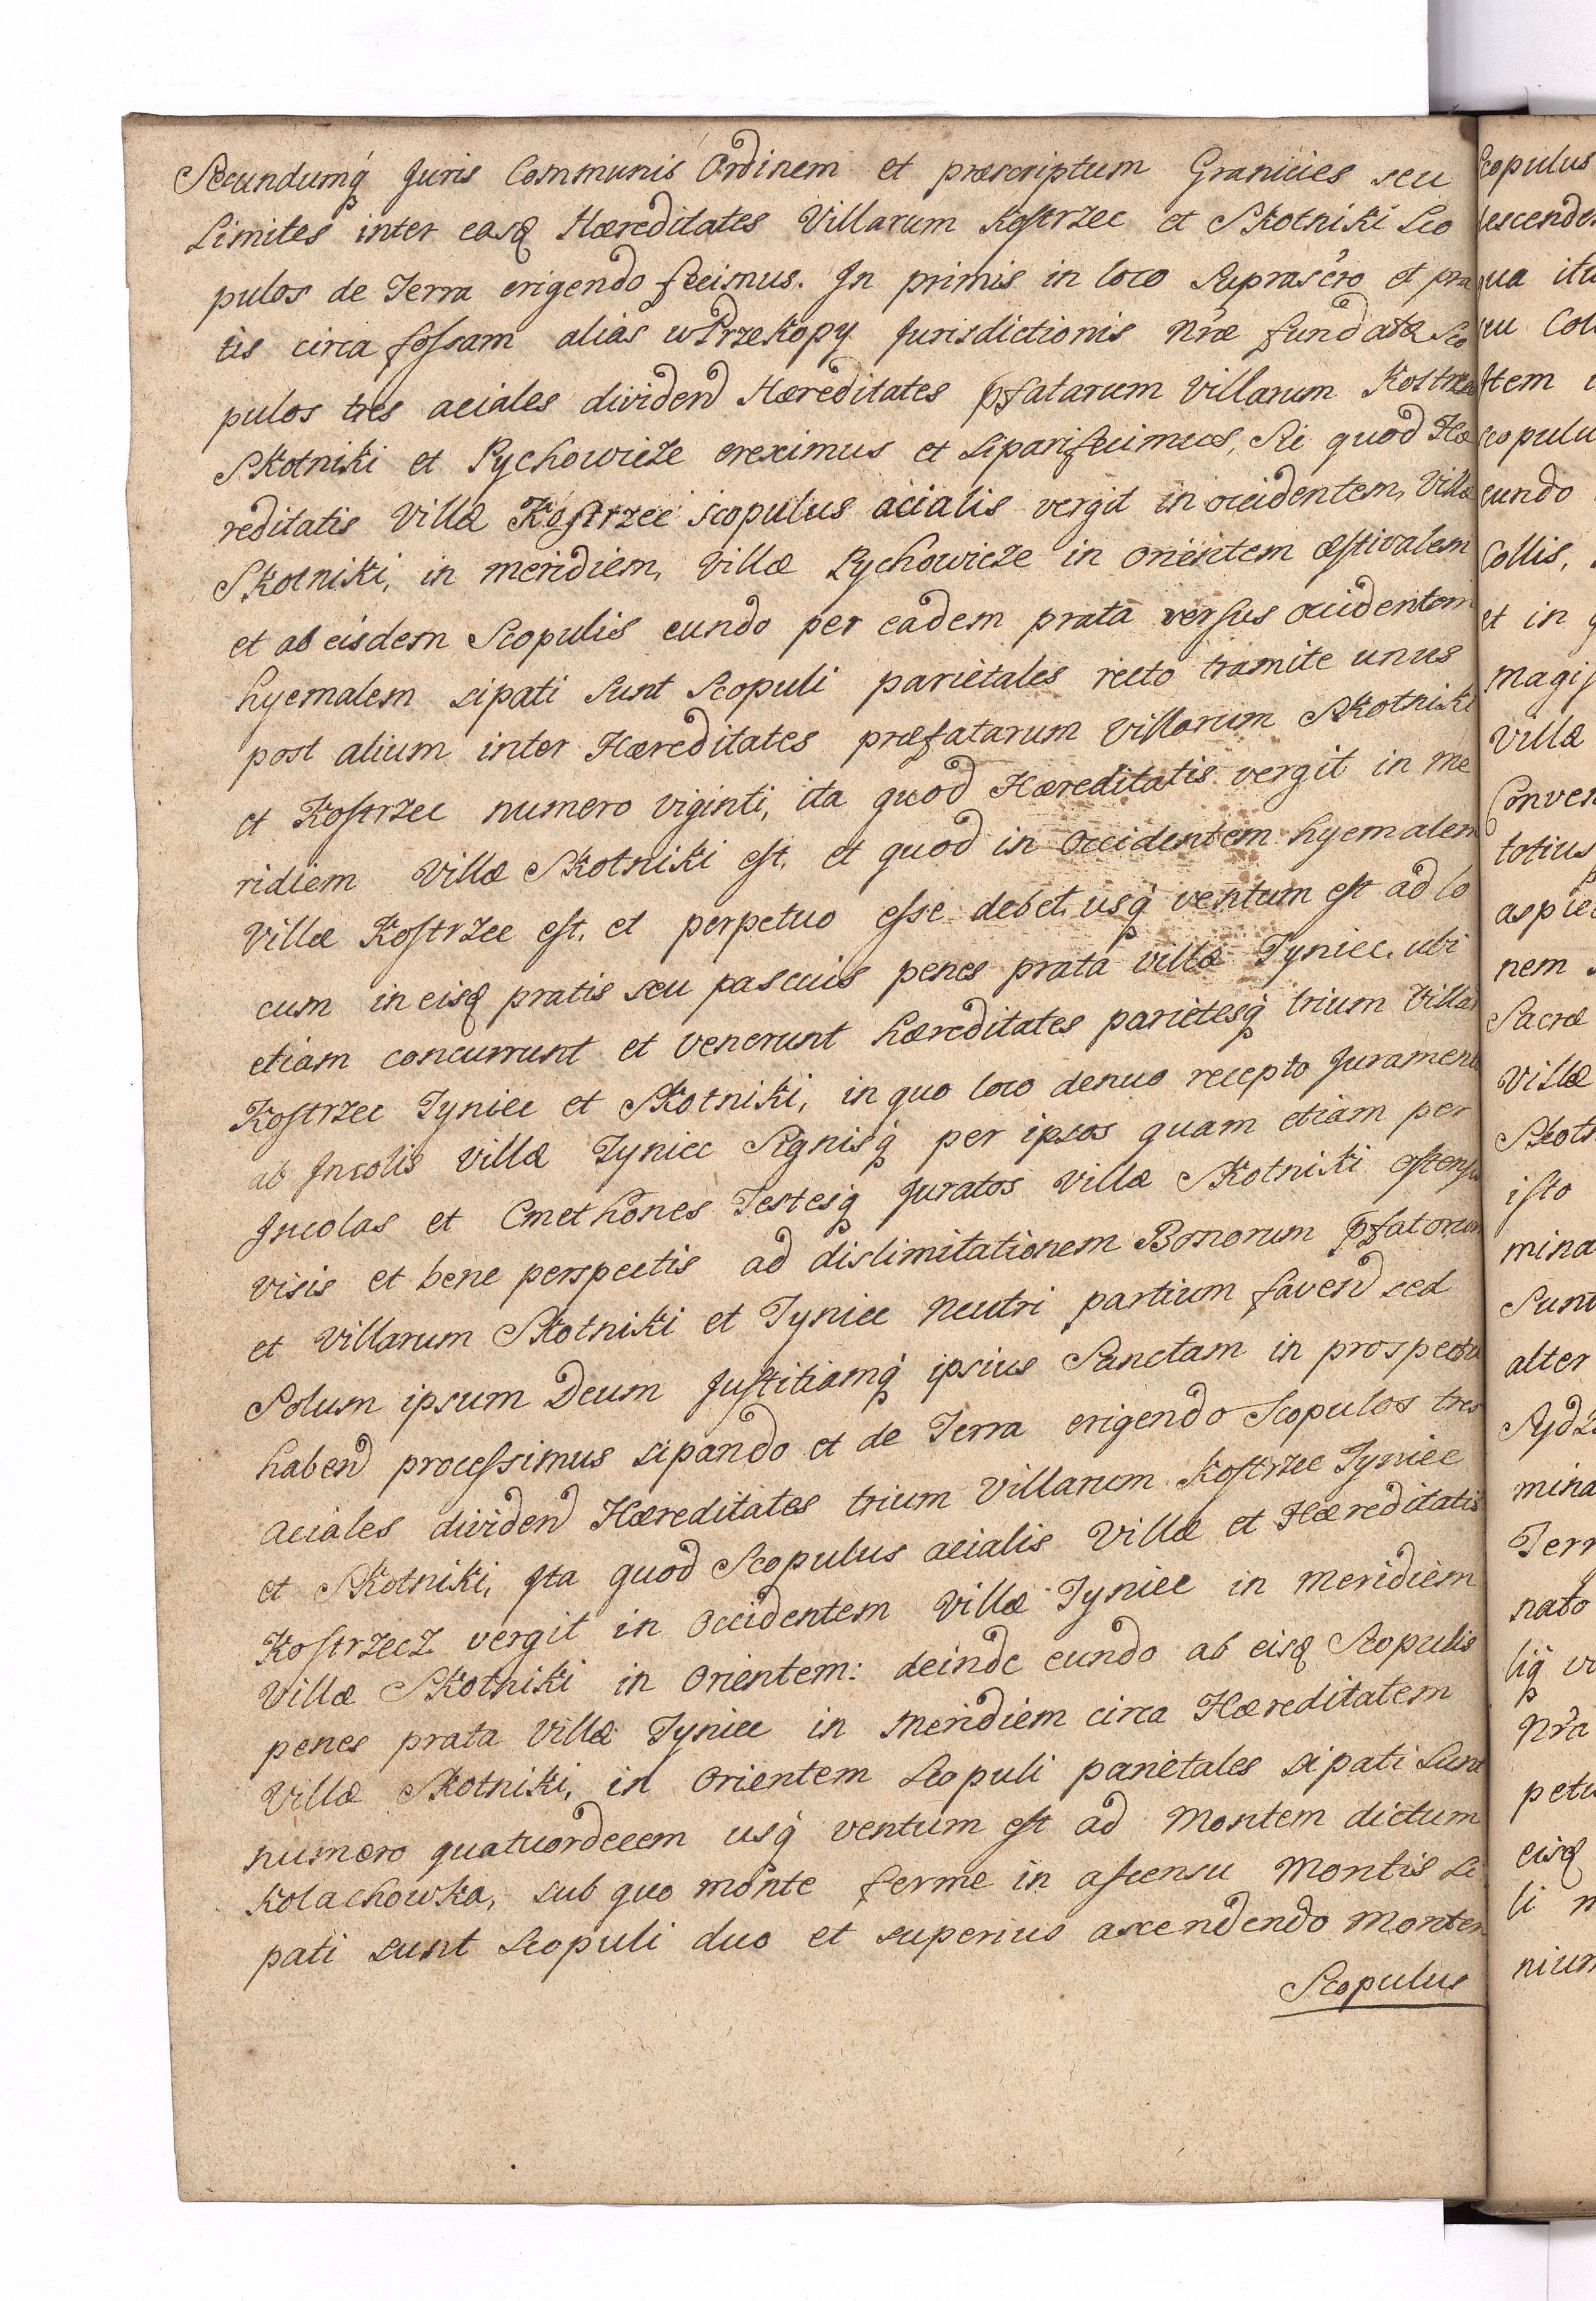 Secundumq́ Juris Communis Ordinem et præscriptum Granicies seu
Limites inter easq Hæreditates Villarum Kostrzec et Skotniki Sco
pulos de Terra erigendo fecimus. In primis in loco Suprascro et pra
tis circa fossam alias w Przekopy Jurisdictionis nræ fundatæ Sco
pulos tres aciales dividend Hæreditates pfatarum Villarum Kostrzec
Skotniki et Pychowicze ereximus et siparifecimus, Sic quod Hæ
reditatis Villæ Kostrzec scopulus acialis vergit in occidentem, Villæ
Skotniki, in meridiem, Villæ Pychowicze in orientem æstivalem
et ab eisdem Scopulis eundo per eadem prata versus occidentem
hyemalem sipati sunt Scopuli parietales recto tramite unus
post alium inter Hæreditates præfatarum Villarum Skotniki
et Kostrzec numero viginti, ita quod Hæreditatis vergit in me
ridiem Villæ Skotniki est, et quod in Occidentem hyemalem
Villæ Kostrzec est, et perpetuo esse debet, usq́ ventum est ad lo
cum in eisq pratis seu pascuis penes prata villæ Tyniec, ubi
etiam concurrunt et venerunt hæreditates parietesq́ trium Villar
Kostrzec Tyniec et Skotniki, in quo loco denuo recepto Juramento
ab Incolis Villæ Tyniec Signisq́ per ipsos quam etiam per
Incolas et Cmethones Testesq́ Juratos Villæ Skotniki ostensis
visis et bene perspectis ad dislimitationem Bonorum pfatorum
et Villarum Skotniki et Tyniec neutri partium favend sed
Solum ipsum Deum Justitiamq́ ipsius Sanctam in prospectu
habend processimus sipando et de Terra erigendo Scopulos tres
aciales dividend Hæreditates trium Villarum Kostrzec Tyniec
et Skotniki, Ita quod Scopulus acialis Villæ et Hæreditatis
Kostrzecz vergit in Occidentem Villæ Tyniec in meridiem
Villæ Skotniki in Orientem: deinde eundo ab eisq Scopulis
penes prata Villæ Tyniec in meridiem circa Hæreditatem
Villæ Skotniki, in Orientem Scopuli parietales sipati sunt
numero quatuordecem usq́ ventum est ad Montem dictum
Kolachowka, sub quo monte ferme in ascensu Montis si
pati sunt Scopuli duo et superius ascendendo Montem
Scopulus